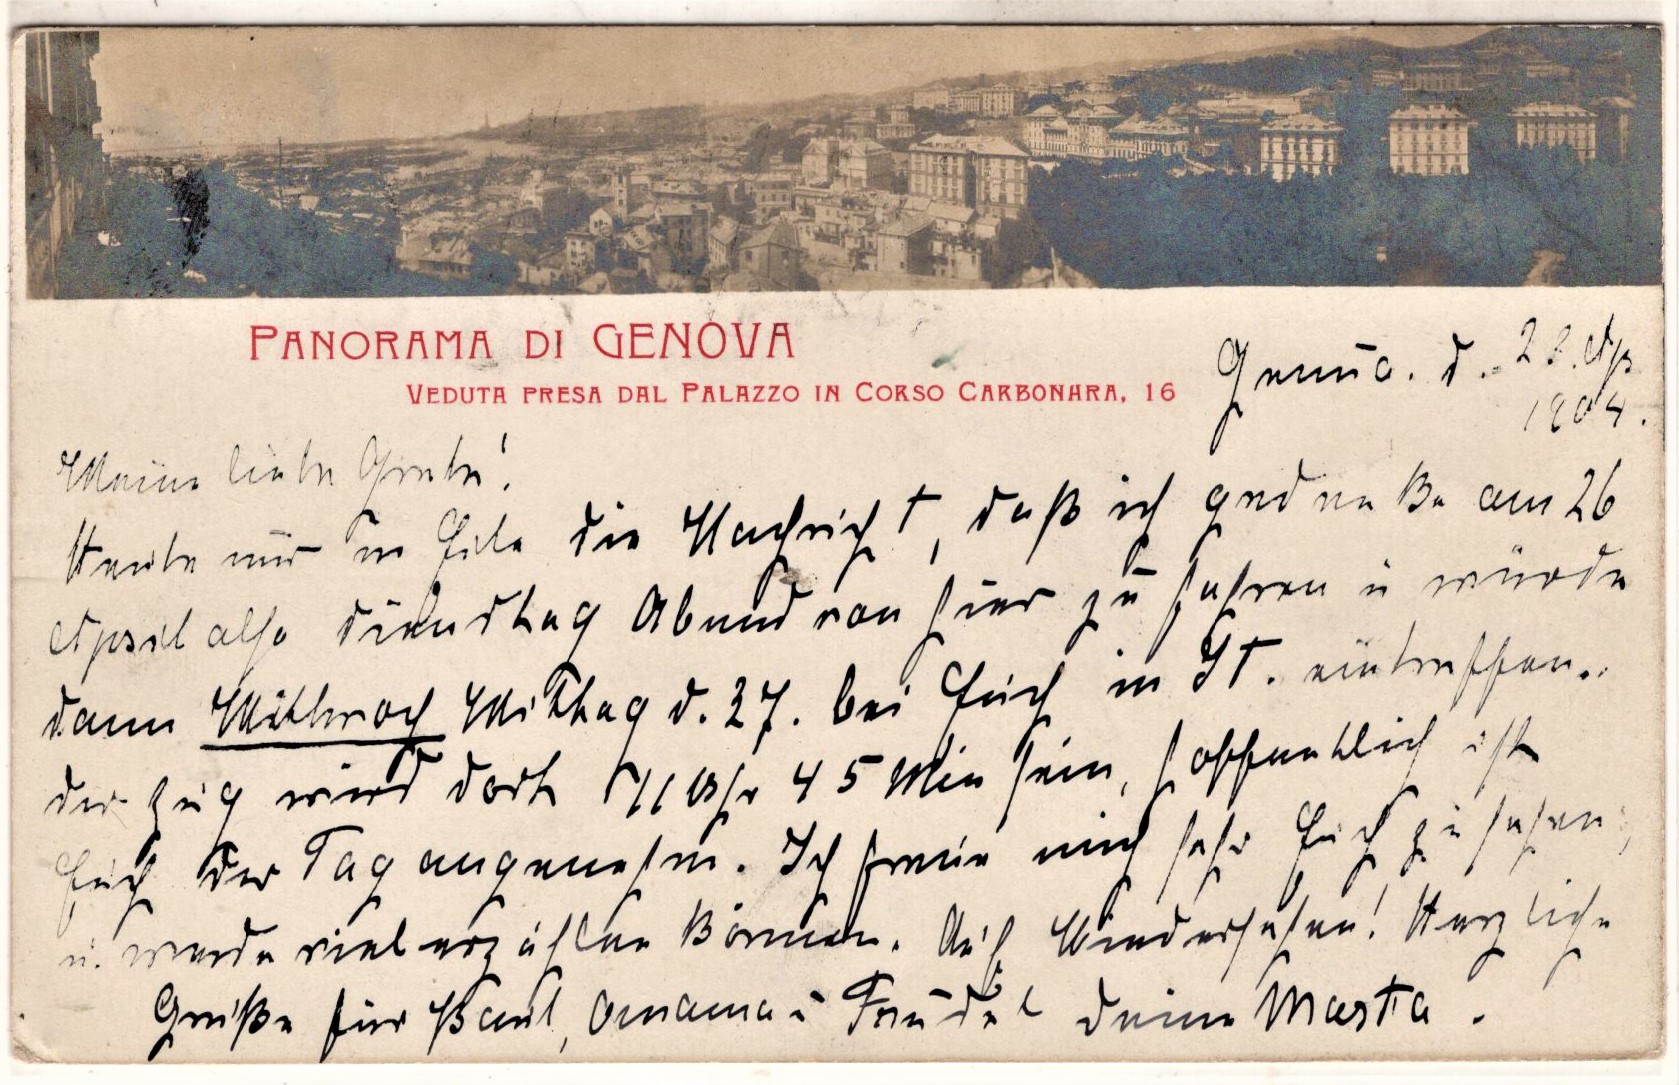 PANORAMA DI GENOVA
VEDUTA PRESA DAL PALAZZO IN CORSO CARBONARA, 16
Genua. d. 23. Ap
1904.
Meine liebe Grete!
Heute nur in Eile die Nachricht, daß ich gedenke am 26
April also Dienstag Abend von hier zu fahren u würde
dann Mittwoch Mittag d. 27. bei Euch in St. eintreffen.
der Zug wird dort 11 Uhr 45 Min sein, hoffentlich ist
Euch der Tag angenehm. Ich freue mich sehr Euch zu sehen,
u. werde viel erzählen können. Auf Wiedersehen! Herzliche
Grüße für Paul, Omama u deine Marta.